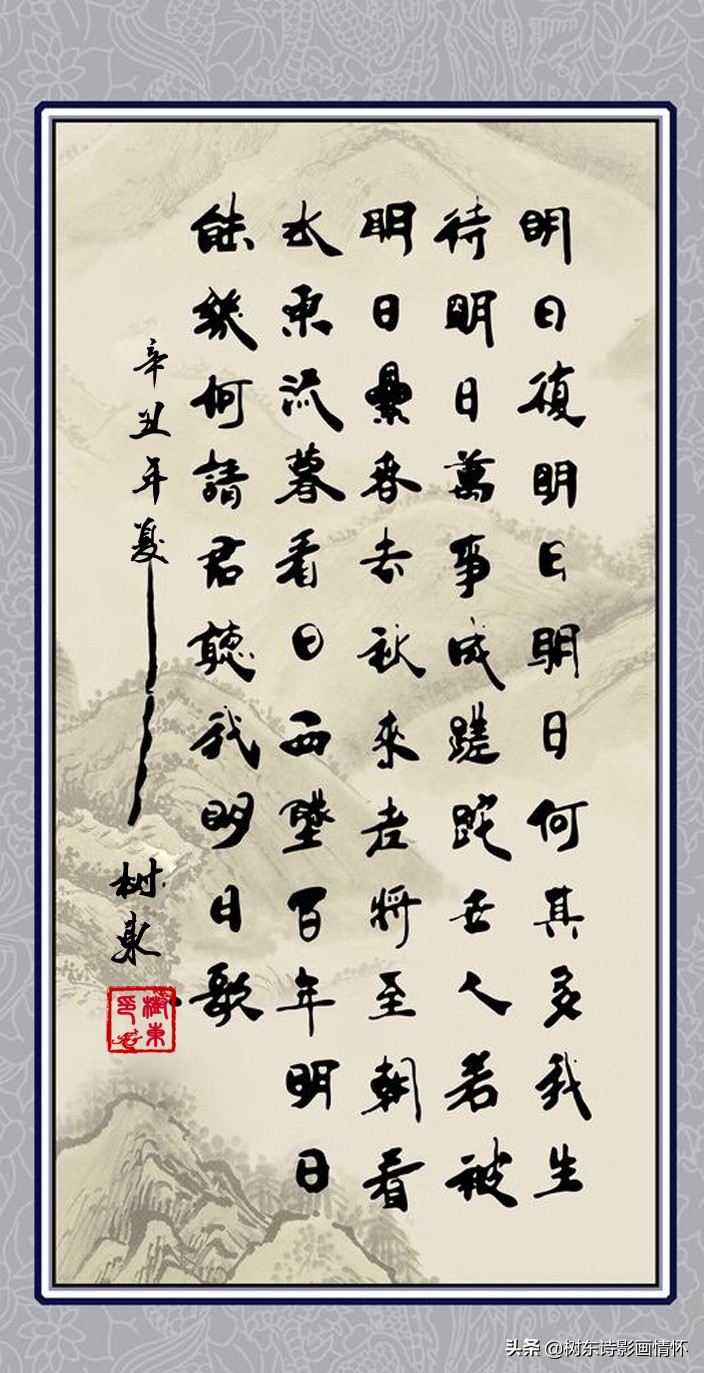 明日復明日明日何其多我生
待明日萬事成蹉跎世人若被
明日纍春去秋來老將至朝看
水東流暮看日西墜百年明日
能幾何請君聽我明日歌
辛丑年夏
树東
樹東
印
头条 @树东诗影画情怀